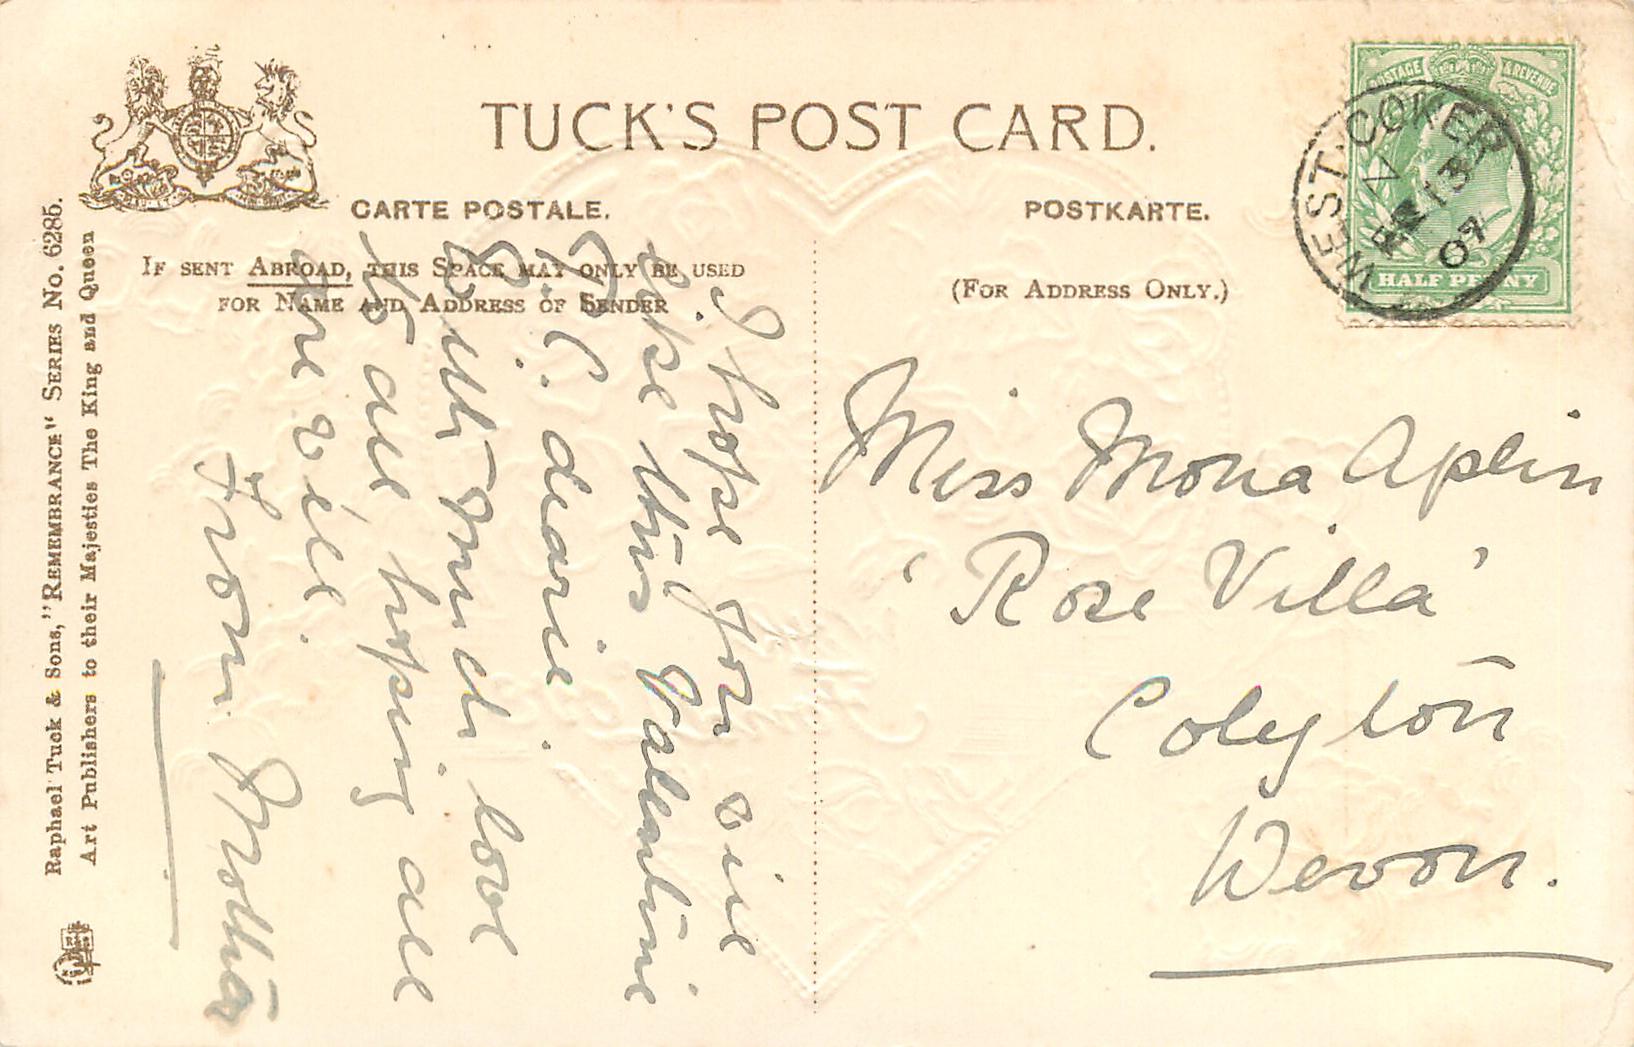 TUCK'S POST CARD.
CARTE POSTALE.
POSTKARTE.
IF SENT ABROAD, THIS SPACE MAY ONLY BE USED
FOR NAME AND ADDRESS OF SENDER
(FOR ADDRESS ONLY.)
Raphael Tuck & Sons, "REMEMBRANCE" SERIES No. 6285.
Art Publishers to their Majesties The King and Queen
POSTAGE & REVENUE
HALF PENNY
WEST COKER
FE 13
07
I hope you will
like this Valentine
P.C. dearie.
With much love
to all hoping all
are well.
From Mother
Miss Mona Aplin
'Rose Villa'
Colyton
Devon.